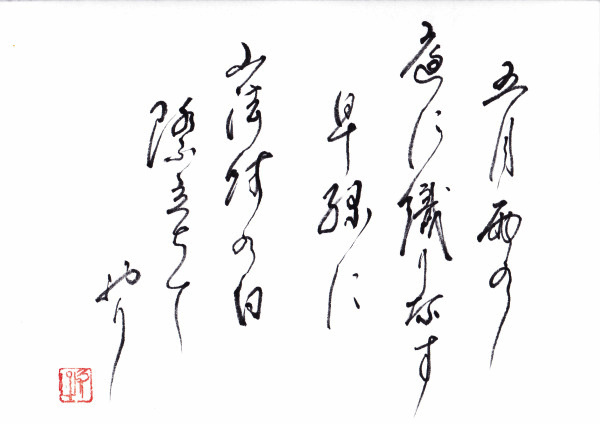 五月雨の
庭に織りなす
早緑に
山法師の白
際立ちて
おり